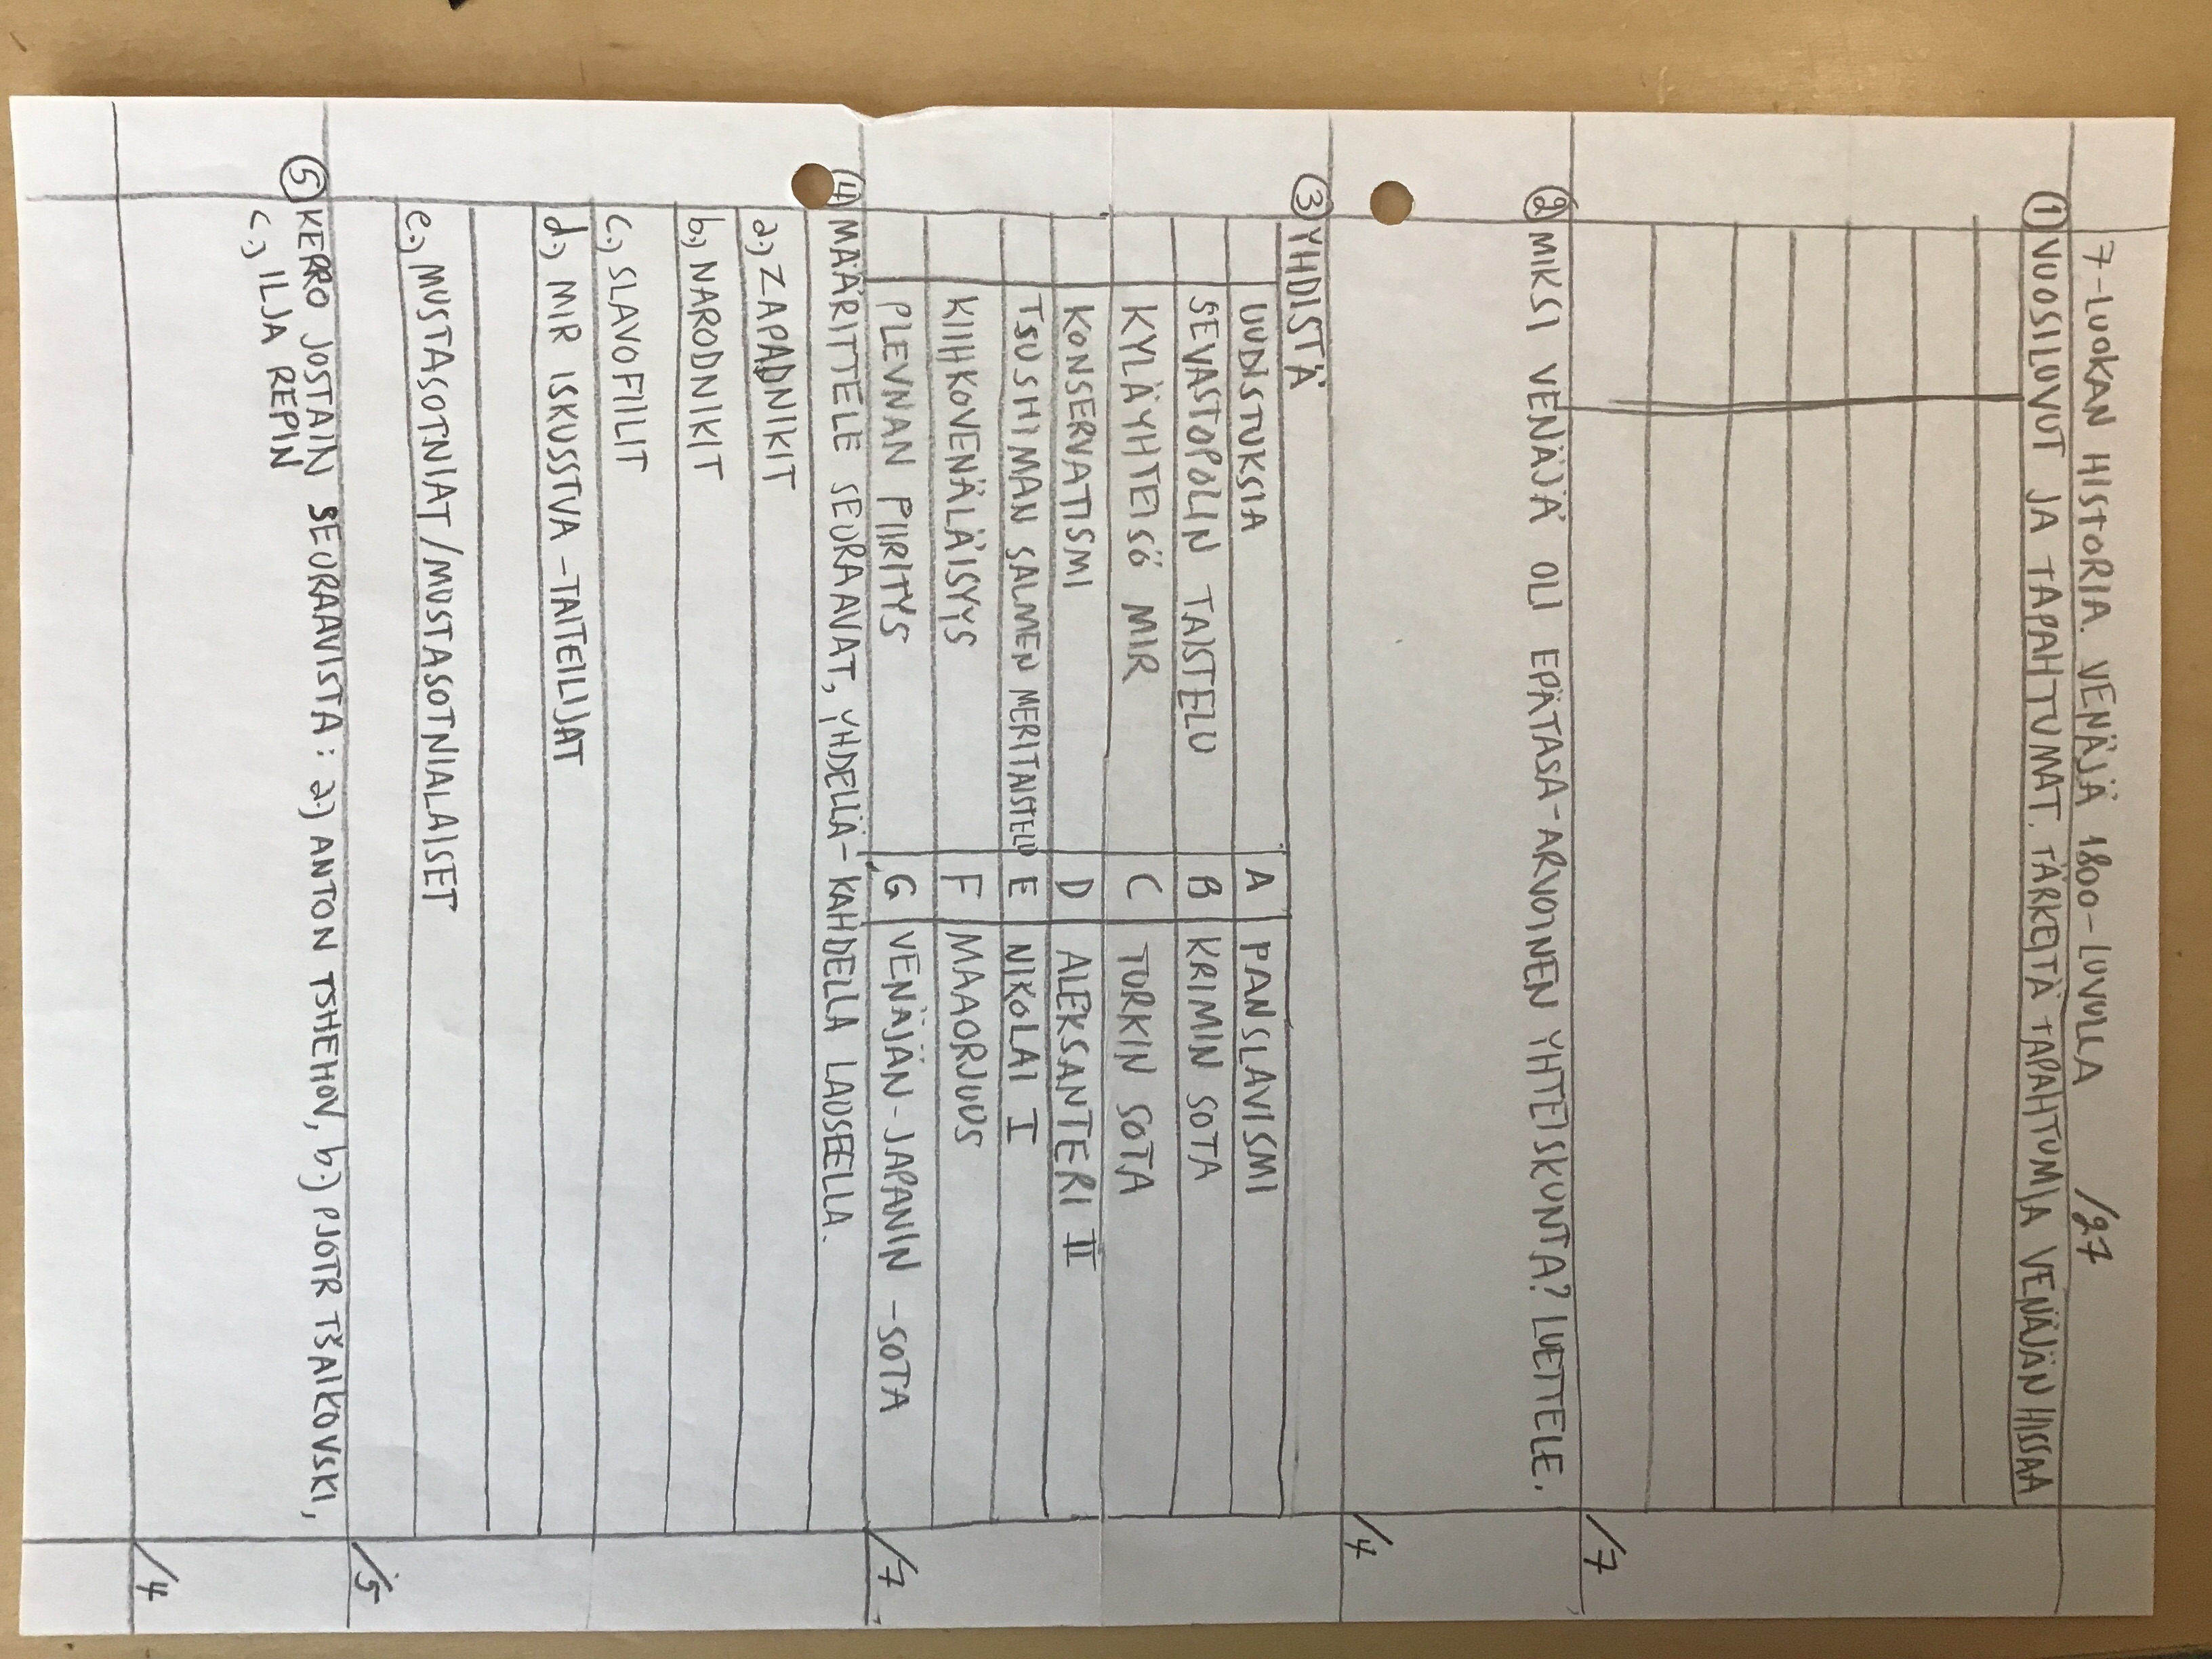 7-LUOKAN HISTORIA. VENÄJÄ 1800-LUVULLA /27
① VUOSILUVUT JA TAPAHTUMAT. TÄRKEITÄ TAPAHTUMIA VENÄJÄN HISSAA
/7
② MIKSI VENÄJÄ OLI EPÄTASA-ARVOINEN YHTEISKUNTA? LUETTELE.
/4
③ YHDISTÄ
UUDISTUKSIA A PANSLAVISMI
SEVASTOPOLIN TAISTELU B KRIMIN SOTA
KYLÄYHTEISÖ MIR C TURKIN SOTA
KONSERVATISMI D ALEKSANTERI II
TSUSHIMAN SALMEN MERITAISTELU E NIKOLAI I
KIIHKOVENÄLÄISYYS F MAAORJUUS
PLEVNAN PIIRITYS G VENÄJÄN-JAPANIN -SOTA
/7
④ MÄÄRITTELE SEURAAVAT, YHDELLÄ-KAHDELLA LAUSEELLA.
a.) ZAPADNIKIT
b.) NARODNIKIT
c.) SLAVOFIILIT
d.) MIR ISKUSSTVA -TAITEILIJAT
e.) MUSTASOTNIAT/MUSTASOTNIALAISET
/5
⑤ KERRO JOSTAIN SEURAAVISTA: a.) ANTON TSHEHOV, b.) PJOTR TŠAIKOVSKI,
c.) ILJA REPIN
/4